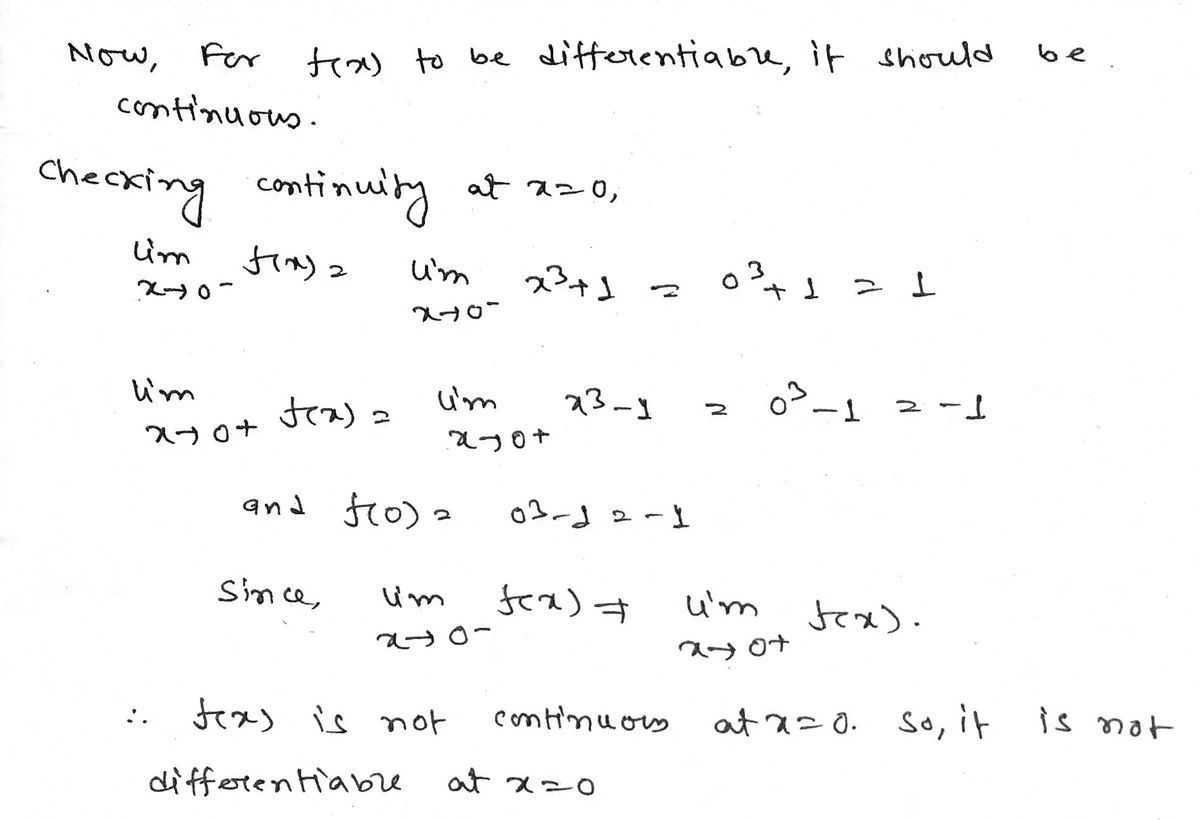 Now, For f(x) to be differentiable, it should be
continuous.
Checking continuity at x=0,
lim x→0⁻ f(x) = lim x→0⁻ x³+1 = 0³+1 = 1
lim x→0+ f(x) = lim x→0+ x³-1 = 0³-1 = -1
and f(0) = 0³-1 = -1
Since, lim x→0⁻ f(x) ≠ lim x→0+ f(x).
∴ f(x) is not continuous at x=0. So, it is not
differentiable at x=0